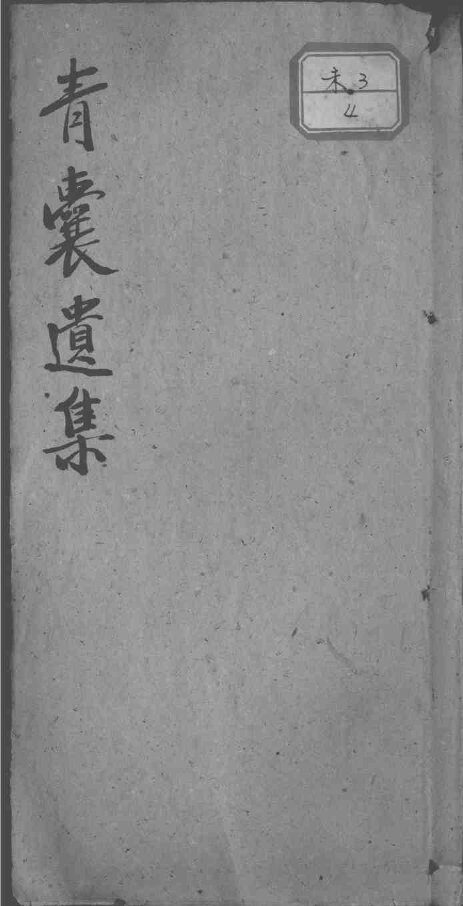 青囊遺集
未3
4